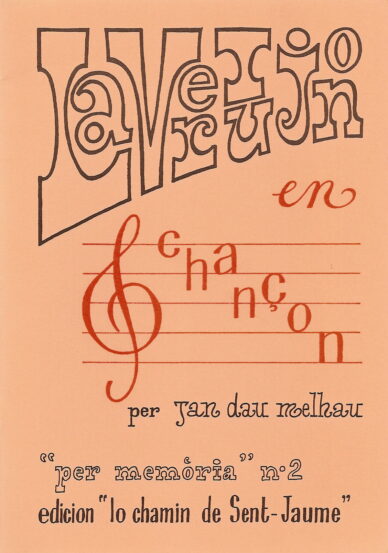 La
en
chançon
per Jan dau Melhau
"per memòria" n·2
edicion "lo chamin de Sent-Jaume"